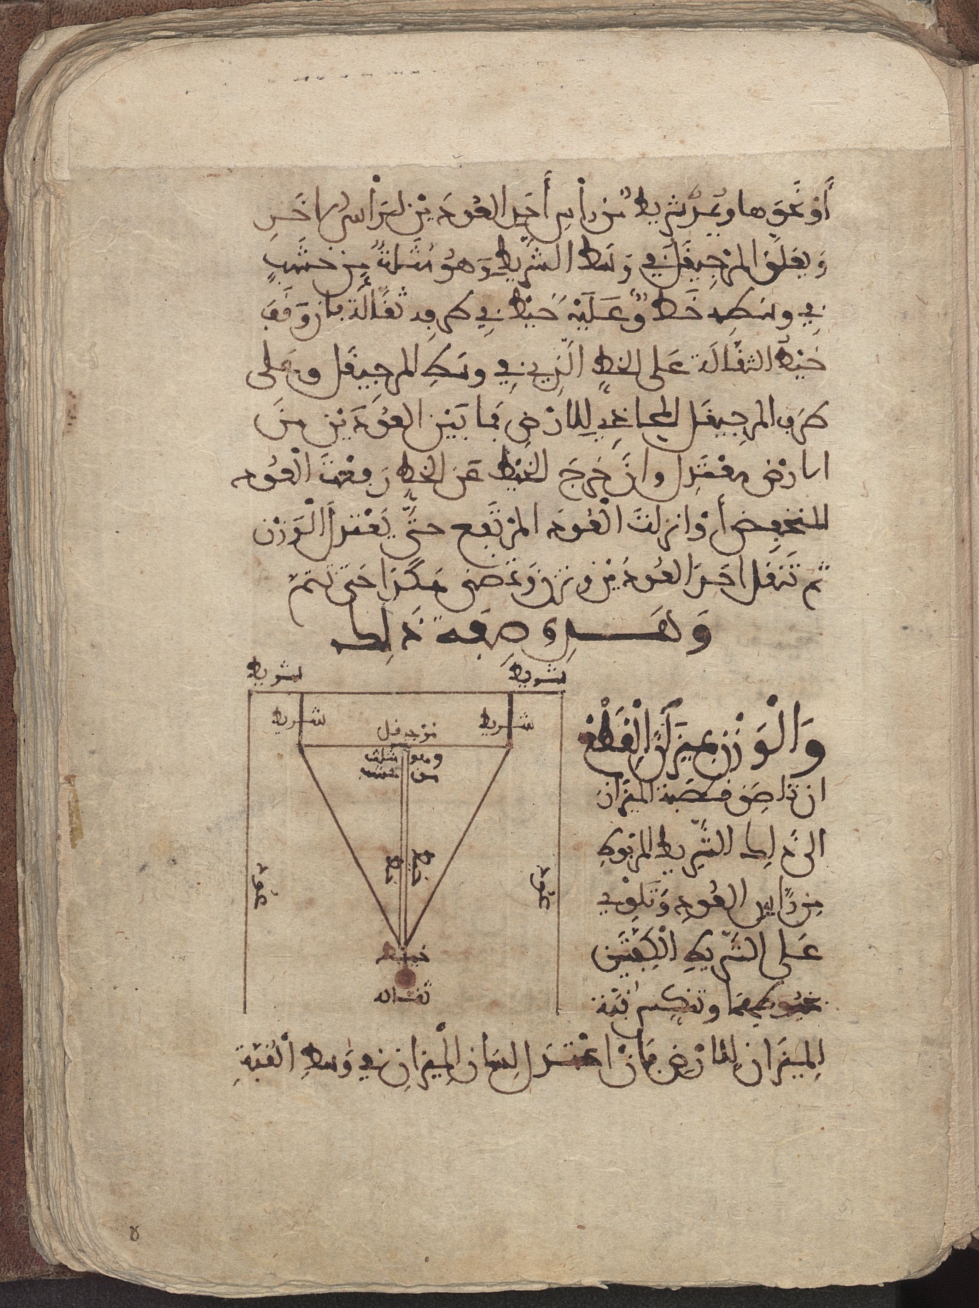 أو نحوها ويمد شريط من رأس أحد العودين لرأس الاخر
ويعلق المرجيقل في وسط الشريط وهو مثلث من خشب
في وسطه خط وعليه خيط في طرفه ثقالة فان وقف
خيط الثقالة على الخط الذي في وسط المرجيقل وعلى
طرف المرجيقل المحاذي للارض فما بين العودين من
الارض معتدل وان خرج الخيط عن الخط رفعت العود
المنخفض أو انزلت العود المرتفع حتى يعتدل الوزن
ثم تنقل احد العودين وتزن وتمضي هكذا حتى تتم
وهذه صفة ذلك
شريط
شريط
شريط
شريط
مرجيقل
وهو مثلث
من خشب
خط
خيط
عود
عود
خيط
ثقاله
والوزن بميزان القطع
ان قصبة الميزان
الى ذلك الشريط المربوط
من رأس العود وتلوي
على الشريط الكفتين
وتنكس قبة
الميزان للارض فان اعتدل لسان الميزان في وسط القبة